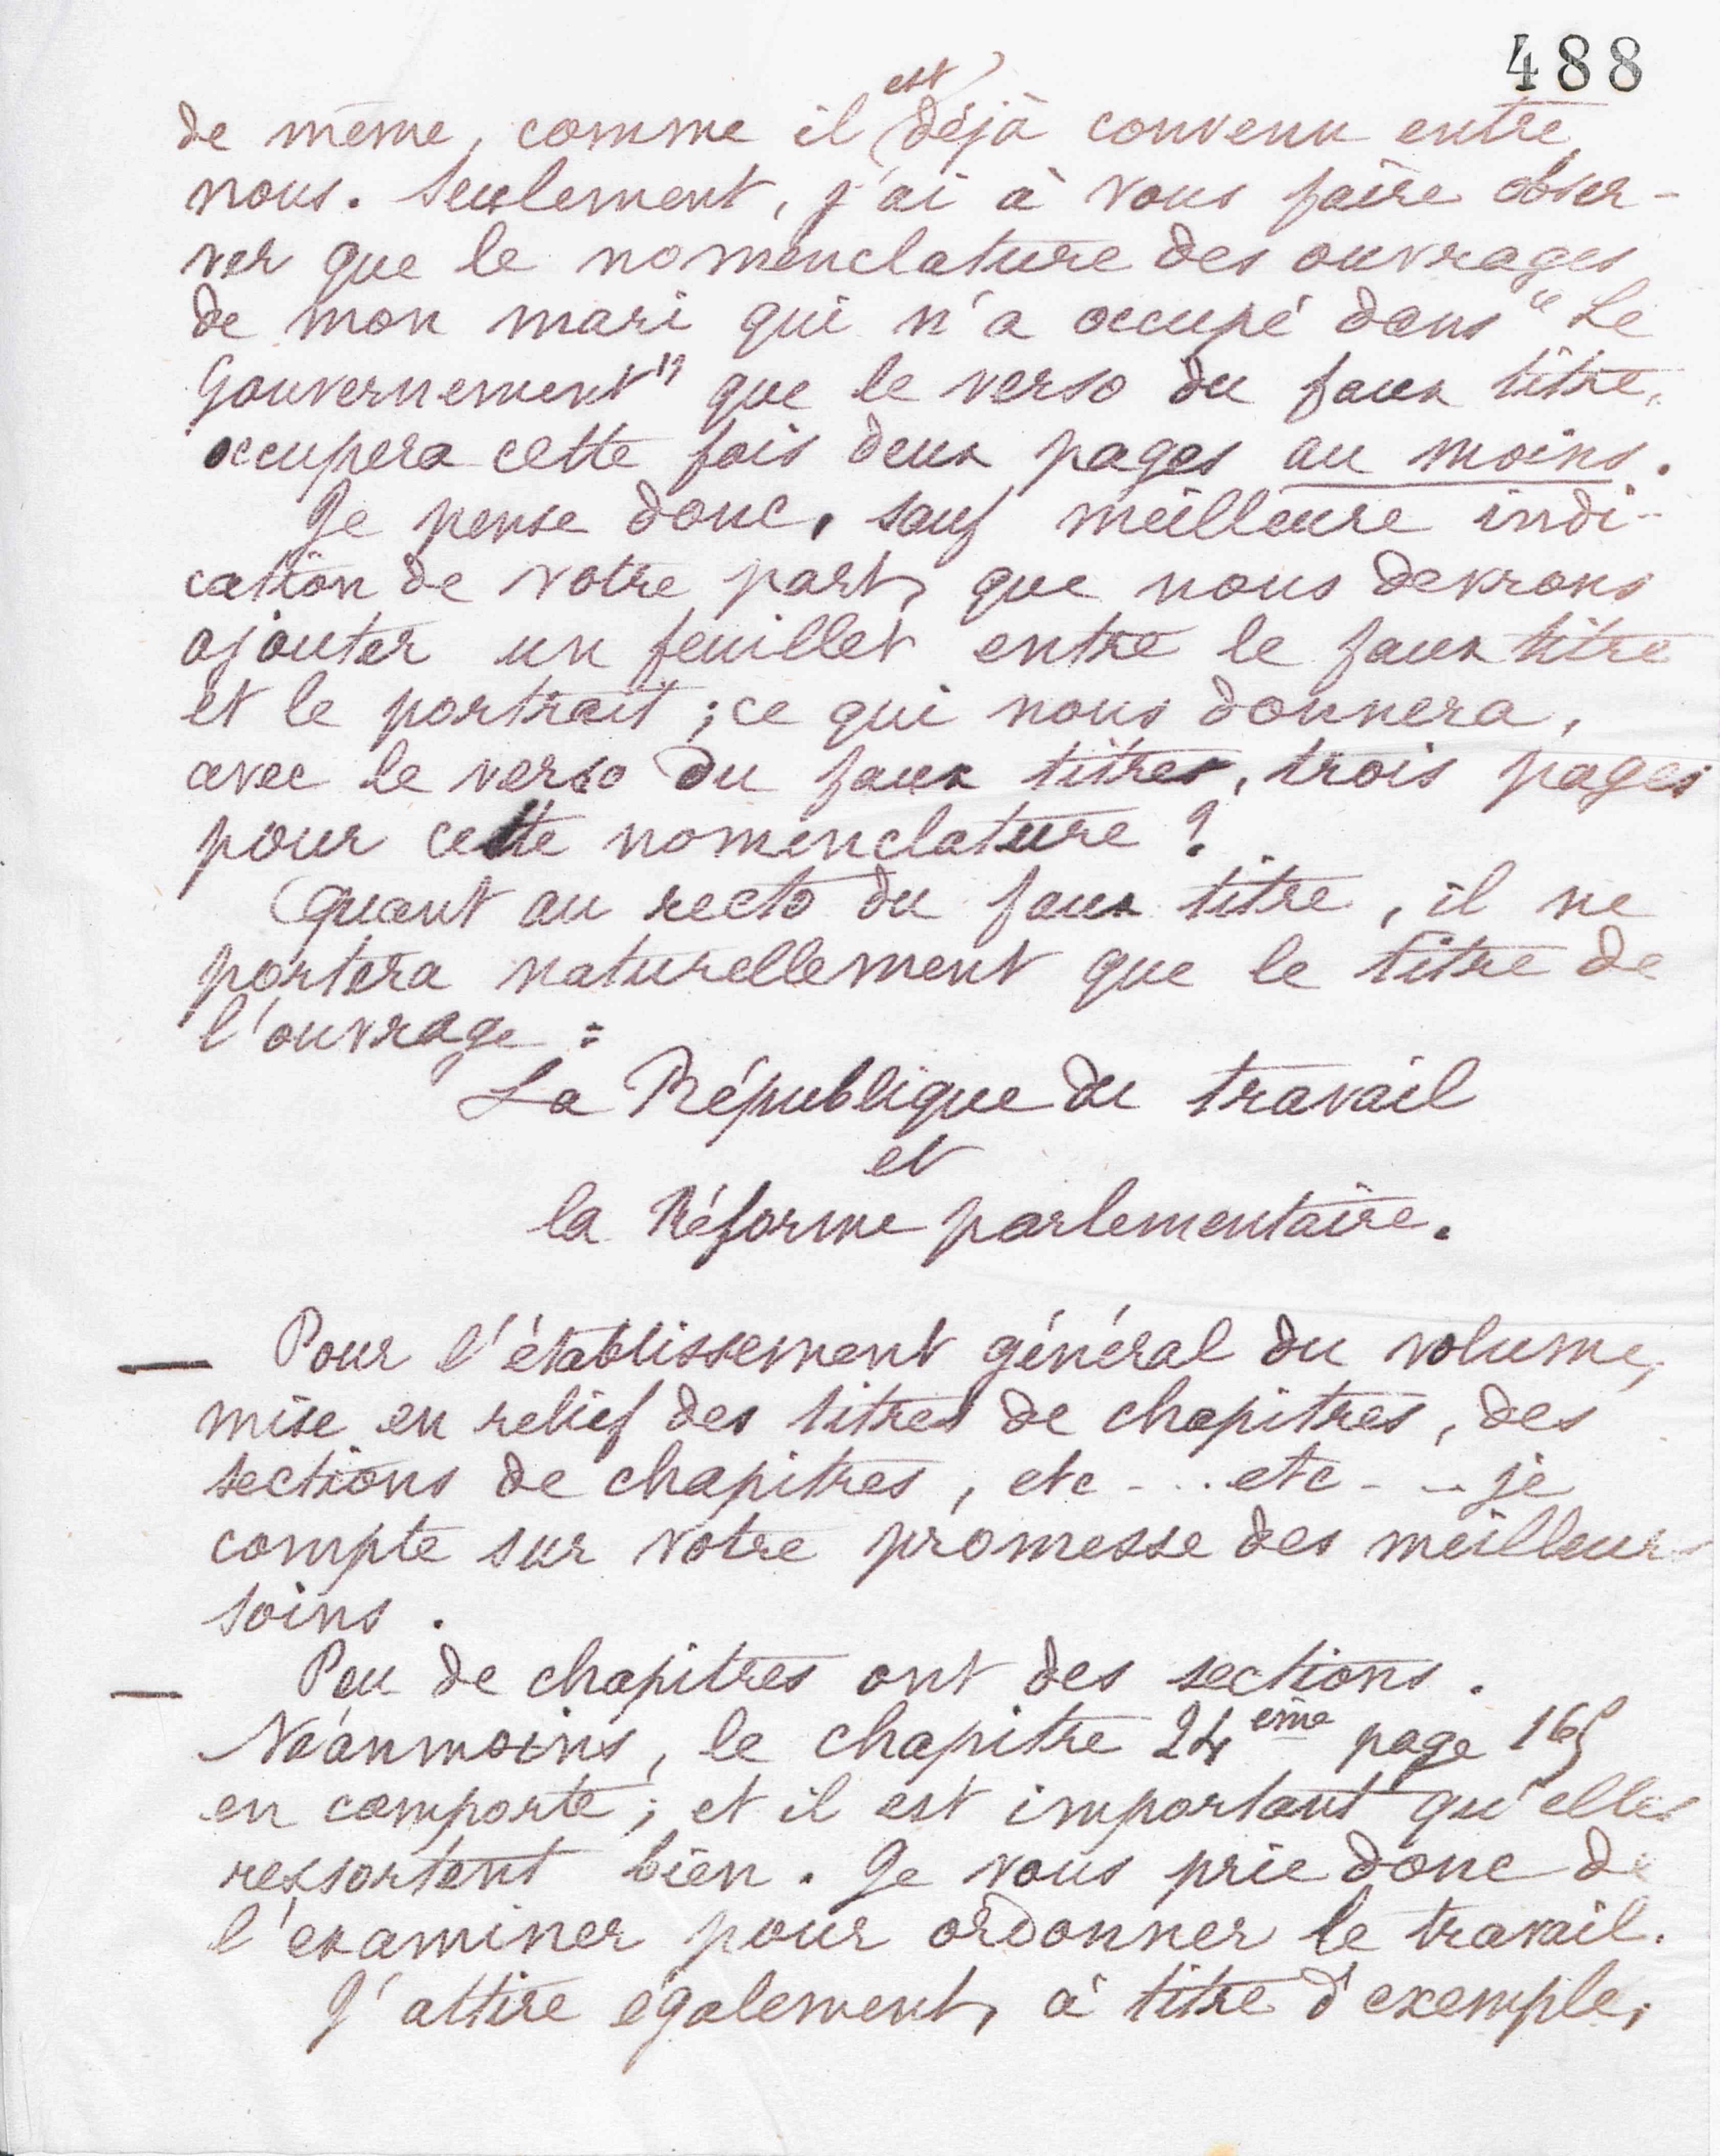 488
de même, comme il est déjà convenu entre
nous. Seulement, j'ai à vous faire obser-
ver que le nomenclature des ouvrages
de mon mari qui n'a occupé dans "Le
Gouvernement" que le verso du faux titre,
occupera cette fois deux pages au moins.
Je pense donc, sauf meilleure indi-
cation de votre part, que nous devrons
ajouter un feuillet entre le faux titre
et le portrait ; ce qui nous donnera,
avec le verso du faux titre, trois pages
pour cette nomenclature ?
Quant au recto du faux titre, il ne
portera naturellement que le titre de
l'ouvrage :
La République du travail
et
la Réforme parlementaire.
— Pour l'établissement général du volume,
mise en relief des titres de chapitres, des
sections de chapitres, etc... etc... je
compte sur votre promesse des meilleurs
soins.
— Peu de chapitres ont des sections.
Néanmoins, le chapitre 24ème page 165
en comporte ; et il est important qu'elles
ressortent bien. Je vous prie donc de
l'examiner pour ordonner le travail.
J'attire également, à titre d'exemple,